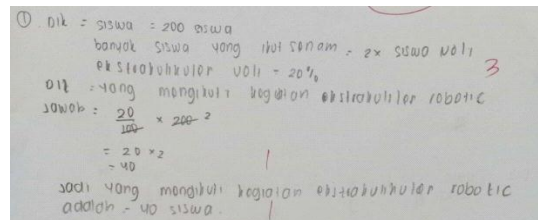 ① Dik = siswa = 200 siswa
banyak siswa yang ikut senam = 2x siswa voli
ekstrakurikuler voli = 20%
3
Dit = yang mengikuti kegiatan ekstrakulikuler robotic
Jawab = 20/100 x 200 2
= 20 x 2
= 40
Jadi yang mengikuti kegiatan ekstrakurikuler robotic
adalah = 40 siswa.